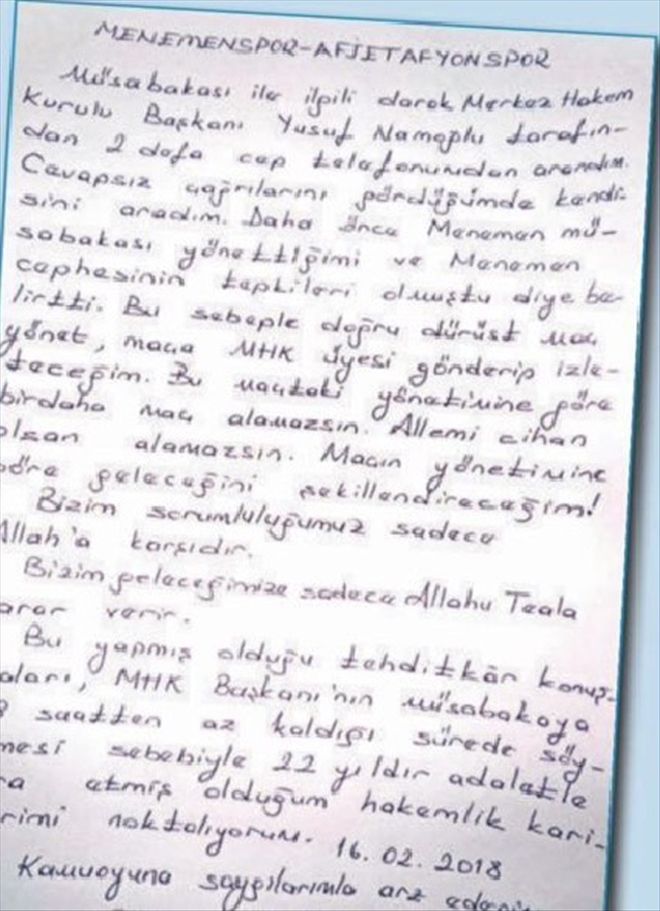 MENEMENSPOR-AFJETAFYONSPOR
Müsabakası ile ilgili olarak Merkez Hakem
Kurulu Başkanı Yusuf Namoğlu tarafın-
dan 2 defa cep telefonumdan arandım.
Cevapsız çağrılarını gördüğümde kendi-
sini aradım. Daha önce Menemen mü-
sabakası yönettiğimi ve Menemen
cephesinin tepkileri olmuştu diye be-
lirtti. Bu sebeple doğru dürüst maç
yönet, maça MHK üyesi gönderip izle-
teceğim. Bu maçtaki yönetimine göre
birdaha maç alamazsın. Allemi cihan
olsan alamazsın. Maçın yönetimine
göre geleceğini şekillendireceğim!
Bizim sorumluluğumuz sadece
Allah'a karşıdır.
Bizim geleceğimize sadece Allahu Teala
arar verir.
Bu yapmış olduğu tehditkâr konuş-
aları, MHK Başkanı'nın müsabakaya
saatten az kaldığı sürede söy-
mesi sebebiyle 22 yıldır adaletle
ra etmiş olduğum hakemlik kari-
rimi noktalıyorum. 16.02.2018
Kamuoyuna saygılarımla arz